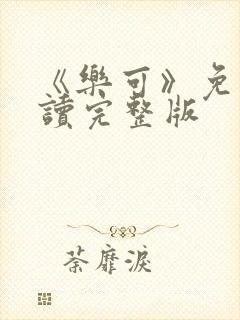 《樂可》免
讀完整版
荼靡淚